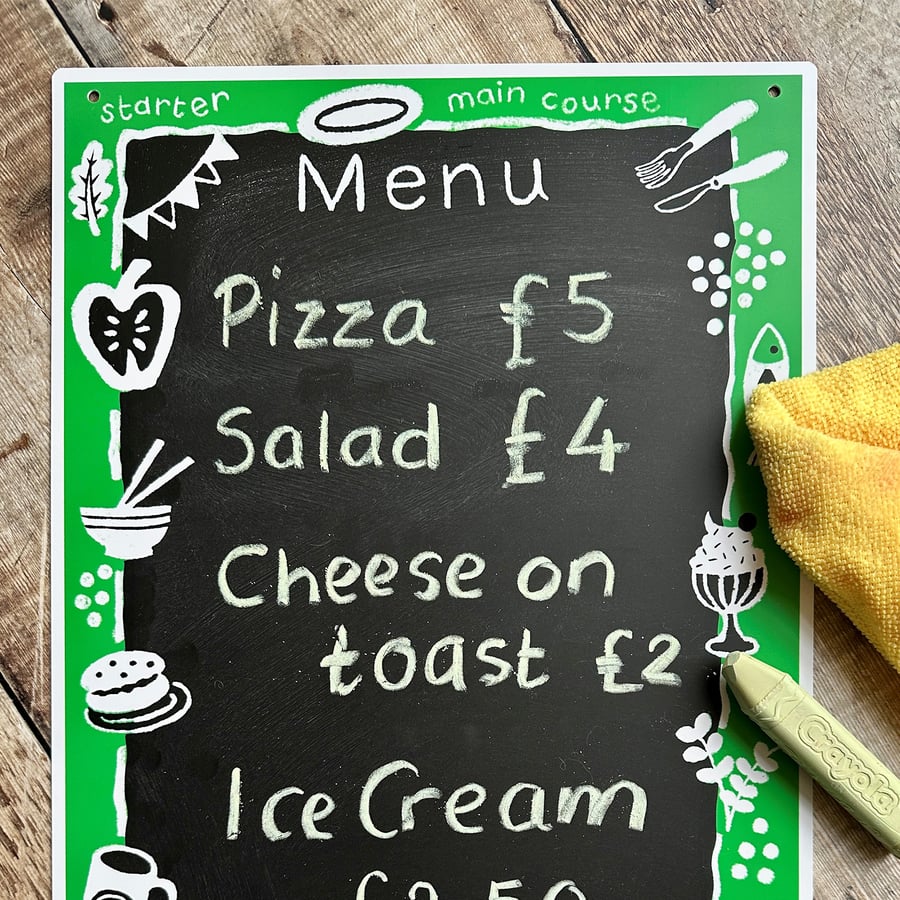 starter main course
Menu
Pizza £5
Salad £4
Cheese on
toast £2
Ice Cream
£2.50
Crayola